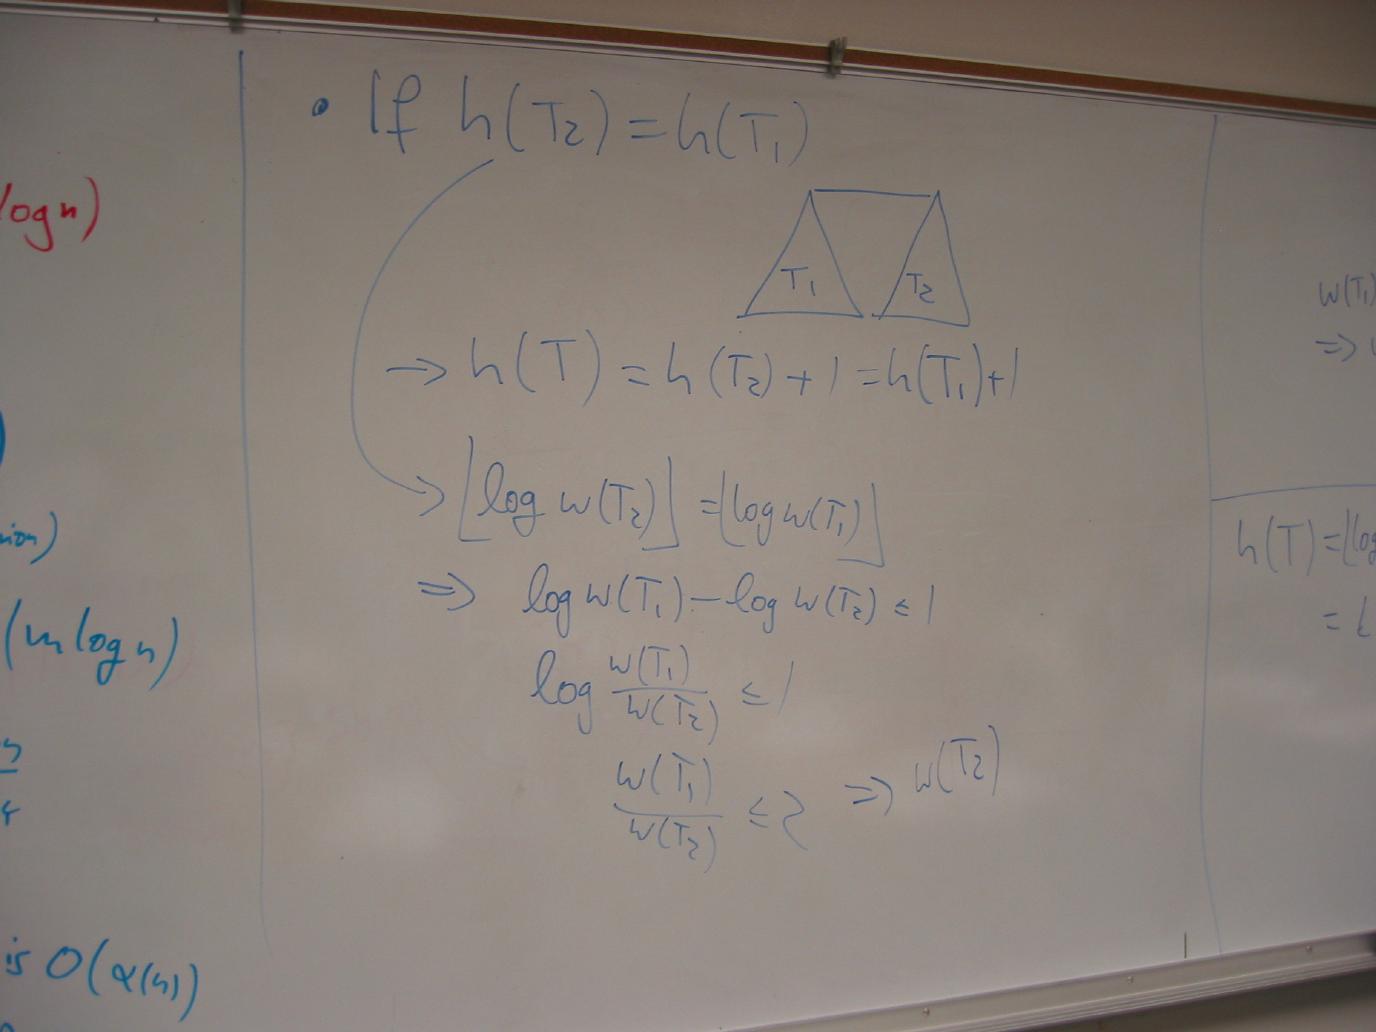 log n)
nion)
(m log n)
is O(α(n))
• If h(T₂) = h(T₁)
T₁ T₂
→ h(T) = h(T₂) + 1 = h(T₁) + 1
→ ⌊log w(T₂)⌋ = ⌊log w(T₁)⌋
⇒ log w(T₁) - log w(T₂) ≤ 1
log w(T₁)/w(T₂) ≤ 1
w(T₁)/w(T₂) ≤ 2 ⇒ w(T₂)
w(T₁)
⇒
h(T) = ⌊log
=